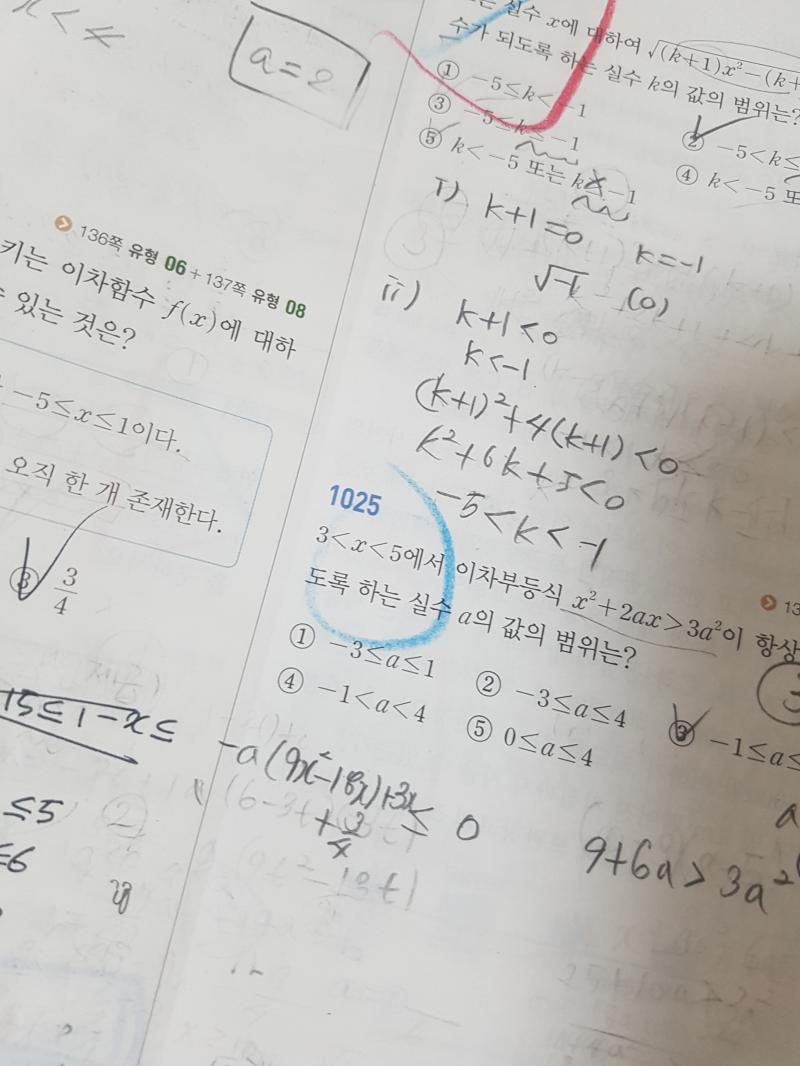 a=2
136쪽 유형 06 + 137쪽 유형 08
키는 이차함수 f(x)에 대하
있는 것은?
-5≤x≤1이다.
오직 한 개 존재한다.
③ 3/4
15≤1-x≤
≤5
≤6
실수 x에 대하여 √(k+1)x²-(k+
수가 되도록 하는 실수 k의 값의 범위는?
① -5≤k<-1
② -5<k≤
③ -5≤k≤-1
④ k<-5 또
⑤ k<-5 또는 k>-1
i) k+1=0
k=-1
√-1 (0)
ii) k+1<0
k<-1
(k+1)²+4(k+1)<0
k²+6k+5<0
-5<k<-1
1025
3<x<5에서 이차부등식 x²+2ax>3a²이 항상
도록 하는 실수 a의 값의 범위는?
① -3≤a≤1
② -3≤a≤4
③ -1≤a≤
④ -1<a<4
⑤ 0≤a≤4
13
-a(9x²-18x)+3x
+3/4 ≤ 0
a
9+6a>3a²